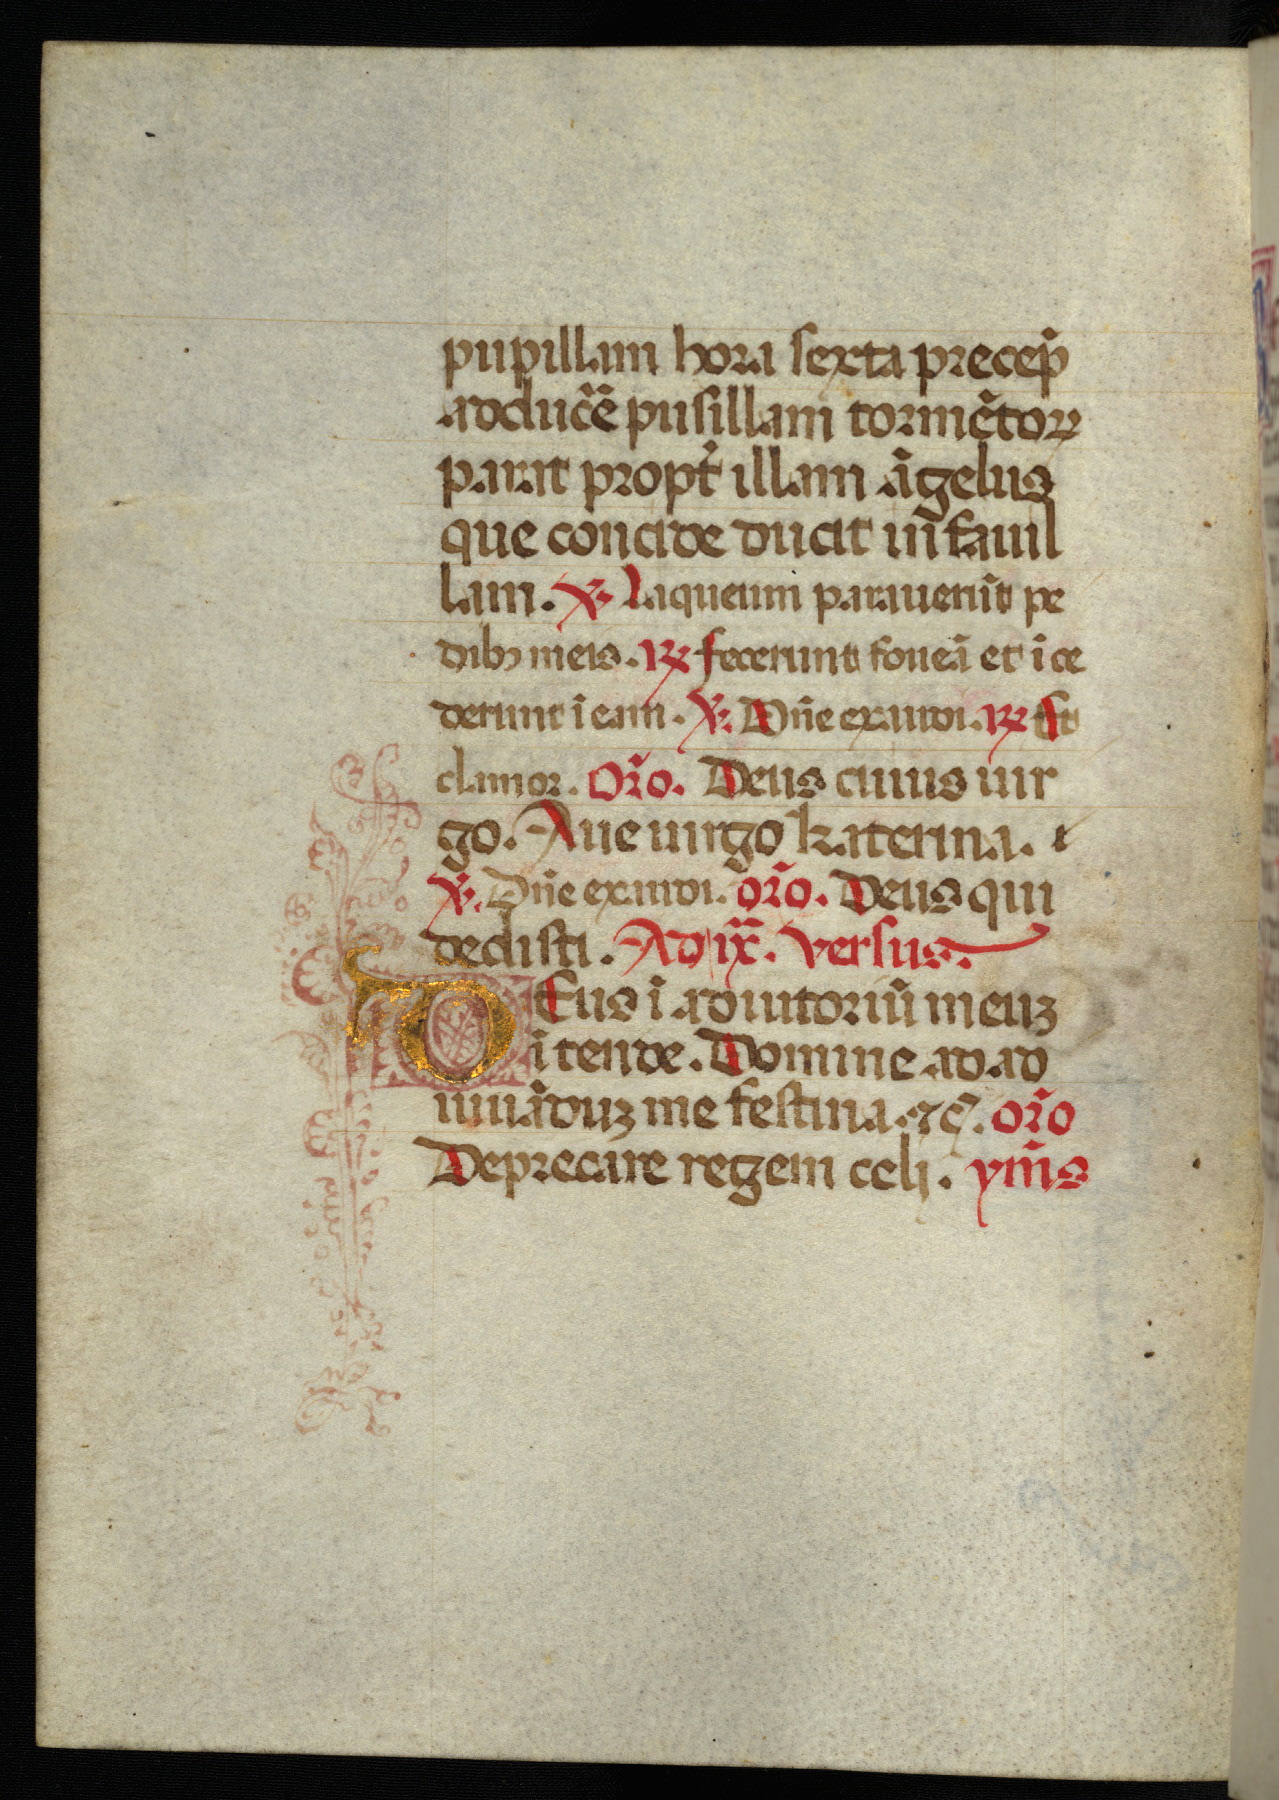 pupillam hora sexta precep̃
adducẽẽ pusillam tormẽtoꝝ
parat propt̉ illam ãgelus
que concide ducit iñ fauil
lam. ℣. Laqueum parauerũt pe
dibꝫ meis. ℟ fecerunt foueã et ĩce
derunt ĩ eam. ℣. Dñe exaudi. ℟ Et
clamor. Or̃o. Deus cuius uir
go. Aue uirgo katerina.
℣. Dñe exaudi. or̃o. Deus qui
dedisti. Ad ix̃. versus.
DEus ĩ adiutoriũ meuʒ
ĩtende. Domine ad ad
iuuãduʒ me festina. ⁊c̃. or̃o
Deprecare regem celj. ym̃s